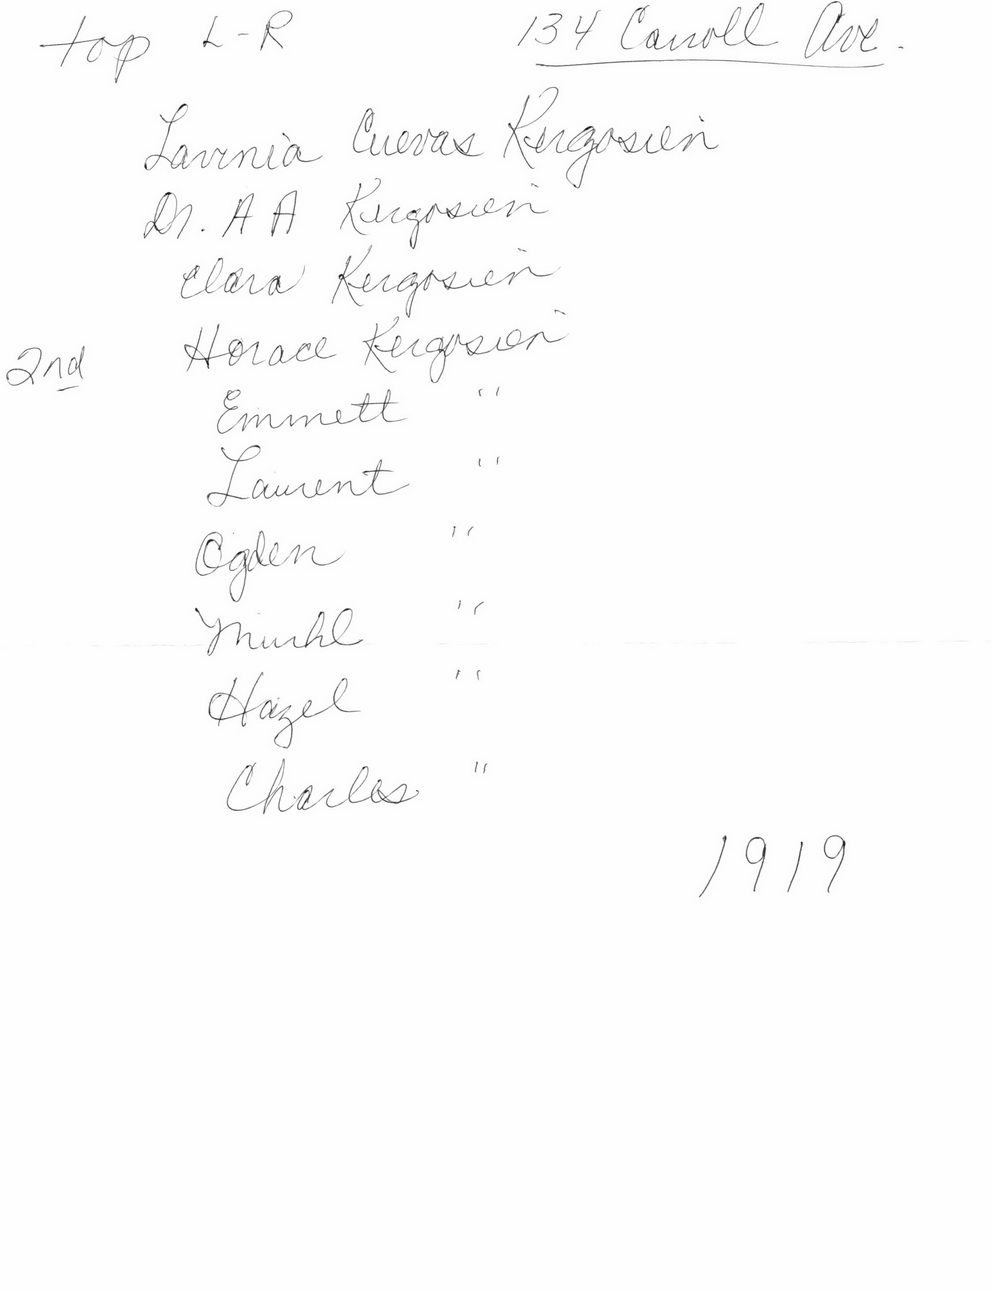 top L-R 134 Carroll Ave.
Lavinia Cuevas Kergosien
Dr. A A Kergosien
Clara Kergosien
2nd Horace Kergosien
Emmett "
Laurent "
Ogden "
"
Hazel "
Charles "
1919